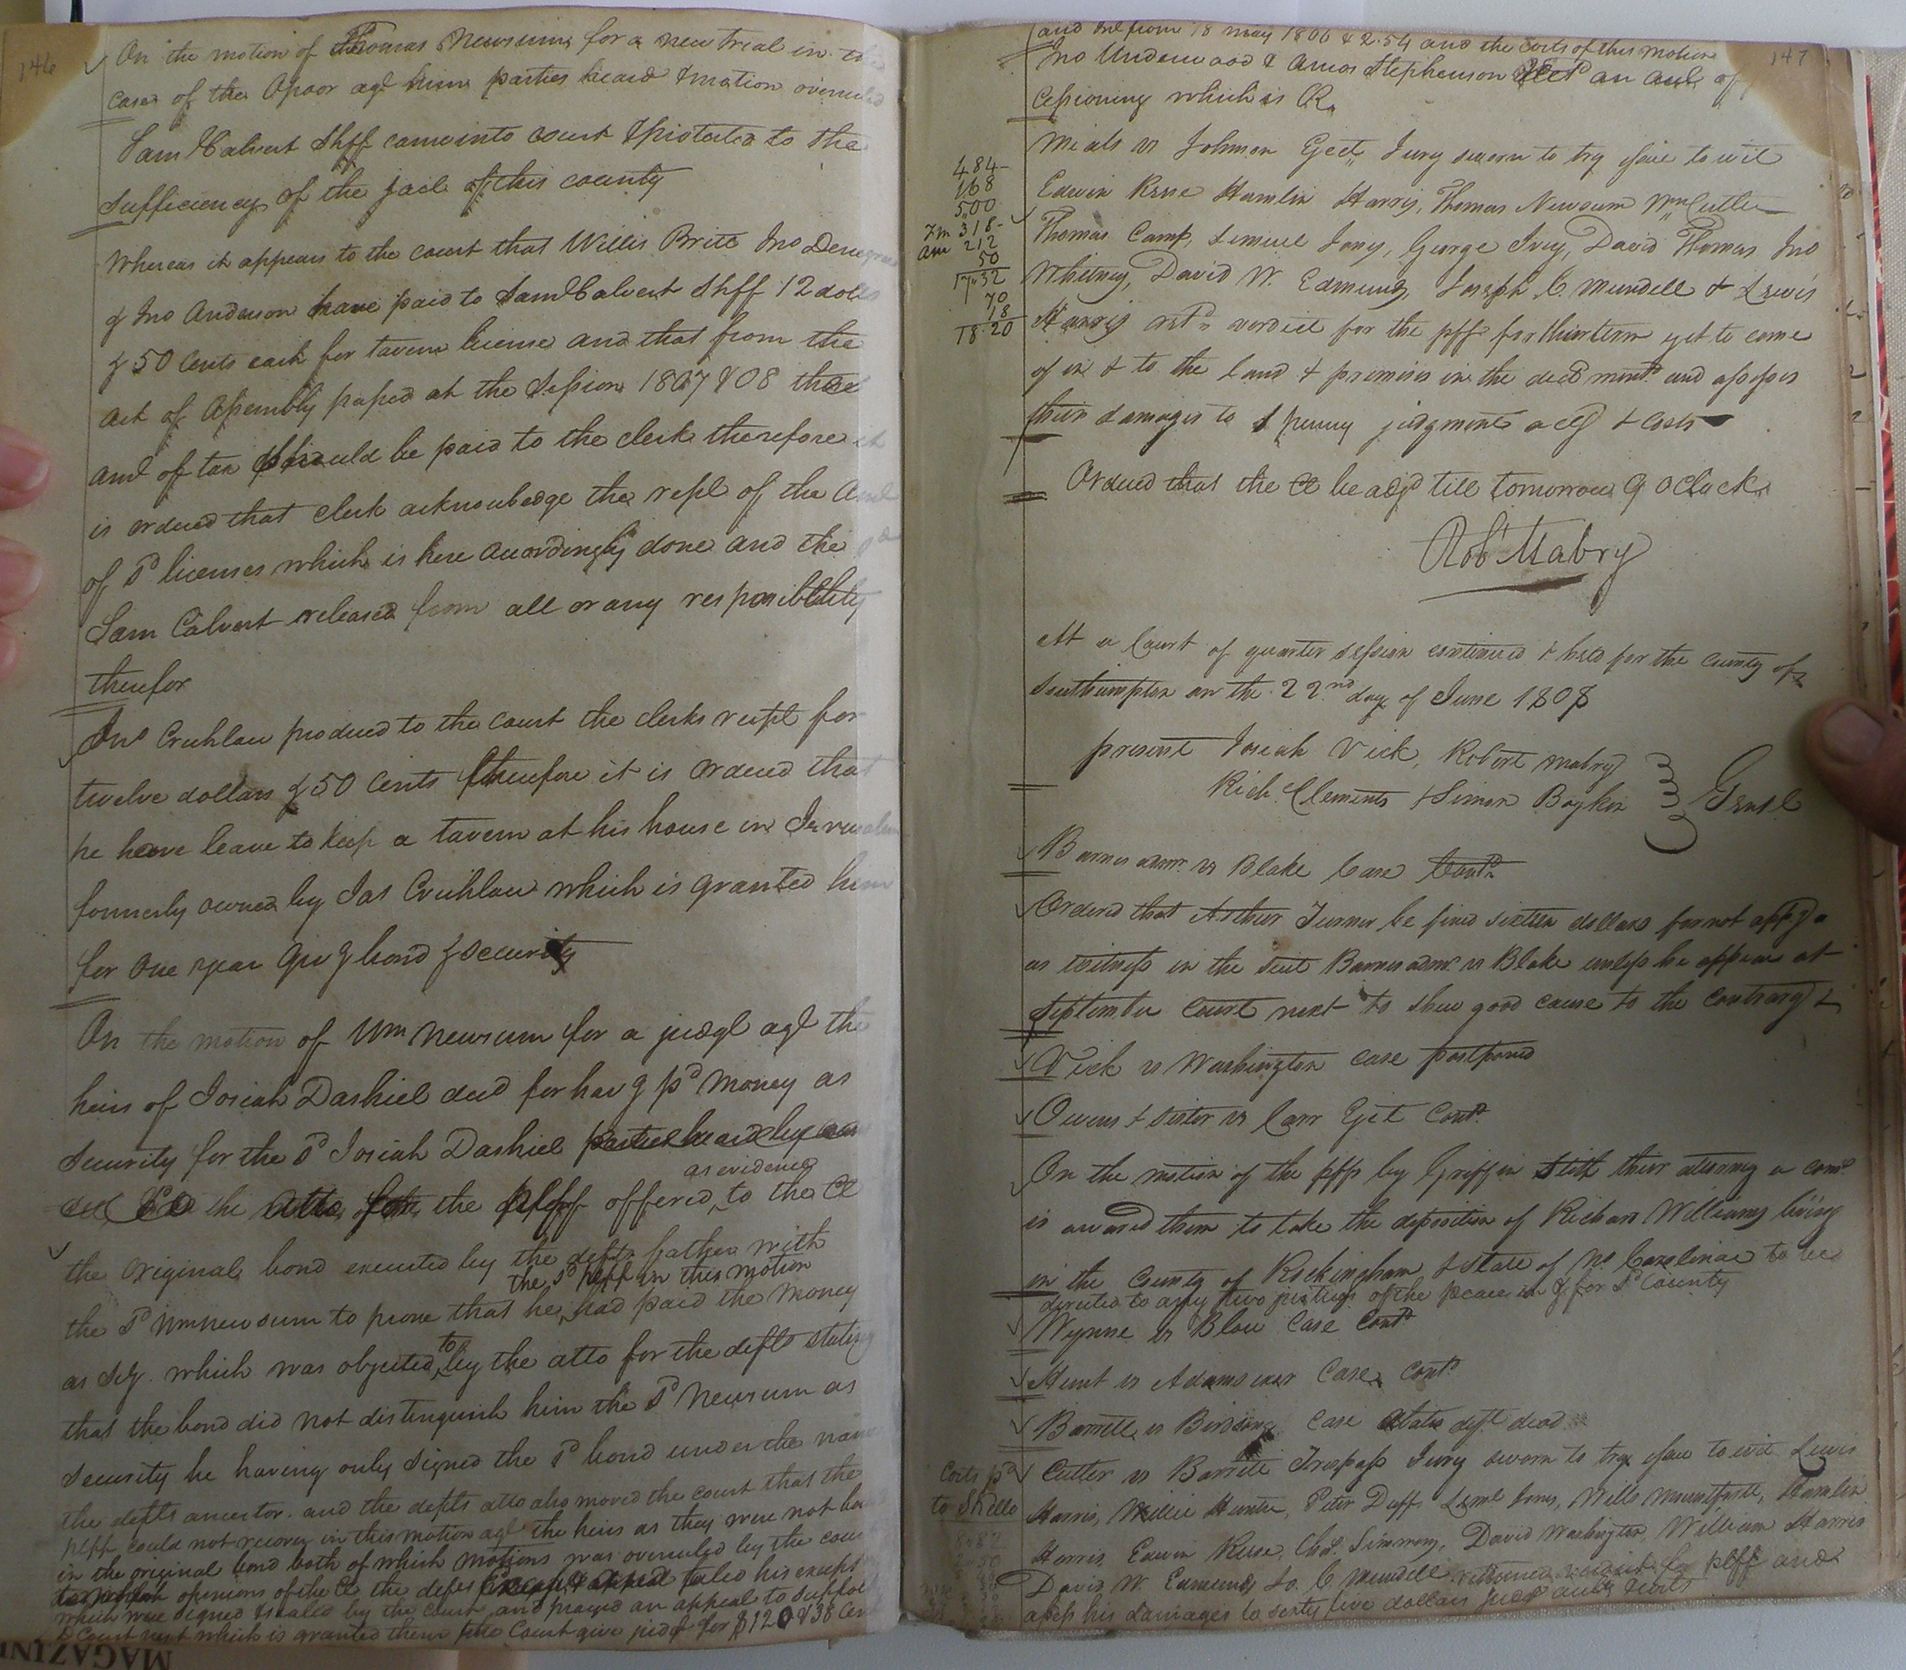 146
On the motion of Thomas Newsum for a new trial in the
case of the Apoor agt him parties heard & motion overruled
Sam Calvert Shff came into court & protested to the
sufficiency of the jail of this county
Whereas it appears to the court that Willis Britt Jno
& Jno Anderson have paid to Sam Calvert Shff 12 dolls
& 50 cents each for tavern license and that from the
act of Assembly passed at the Session 1807 & 08 the
amt of tax should be paid to the clerk therefore it
is ordered that clerk acknowledge the rept of the amt
of sd licenses which is here accordingly done and the sd
Sam Calvert released from all or any responsibility
therefor
Jno Crichlow produced to the court the clerks recpt for
twelve dollars & 50 cents therefore it is ordered that
he have leave to keep a tavern at his house in Jerusalem
formerly owned by Jas Crichlow which is granted him
for one year givg bond & security
On the motion of Wm Newsum for a judgt agt the
heirs of Josiah Dashiel decd for havg pd money as
security for the sd Josiah Dashiel parties heard by
the atto for the plff offered to the Ct
as evidence
the original bond executed by the defts father with
the sd plff in this motion
the sd Wm Newsum to prove that he had paid the money
as sey. which was objected to by the atto for the defts stating
that the bond did not distinguish him the sd Newsum as
security he having only signed the sd bond under the name
the defts ancestor. and the defts atto also moved the court that the
plff could not recover in this motion agt the heirs as they were not
in the original bond both of which motions was overruled by the court
opinions of the Ct the defts his except
which were signed & sealed by the court, and prayed an appeal to
Court next which is granted them the Court give judgt for $120 & 38 Cents
and Int from 18 may 1806 & 2.54 and the costs of this motion
147
Jno Underwood & Amos Stephenson an of
cessioning which is OR.
Meals vs Johnson Eject Jury sworn to try issue to wit
Edwin Rese Hamlin Harris, Thomas Newsum Wm Cutler
Thomas Camp, Lemuel Jones, George Ivey, David Thomas Jno
Whitney, David W. Edmunds, Joseph C. Mundell & Lewis
Harris retd verdict for the plff for their term yet to come
of in & to the land & premises in the decd ment and assesses
their damages to 1 penny judgment acg & costs
484
168
5.00
318
212
50
17.32
70
18
18.20
Ordered that the Ct be adjd till tomorrow 9 oClock
Robt Mabry
At a Court of quarter session continued & held for the county of
Southampton on the 22nd day of June 1808
present Josiah Vick, Robert Mabry
Rich Clements & Simon Boykin Gentl
Barnes admr vs Blake Case Contd
Ordered that Arthur Turner be fined sixteen dollars for not appg
as witness in the suit Barnes admr vs Blake unless he appears at
September Court next to shew good cause to the contrary
Vick vs Washington case postponed
Owens & sister vs Carr Ejct Contd
On the motion of the plffs by Griffin Stith their attorney a comn
is awarded them to take the deposition of Richard Williams living
in the County of Rockingham & State of No Carolina to be
directed to any two justices of the peace in & for sd County
Wynne vs Blow Case Contd
Hunt vs Adams exor Case Contd
Barrett vs Birdsong Case abates deft dead
Cutler vs Barrett Trespass Jury sworn to try issue to wit Lewis
Harris, Willie Hunter, Peter Duff, Leml Jones, Wills Mountfort, Hamlin
Harris, Edwin Rese, Chas Simmons, David Washington, William Harris
David W. Edmunds Jo. C Mundell returned verdict for plff and
assess his damages to sixty five dollars judgt and costs
Costs pd